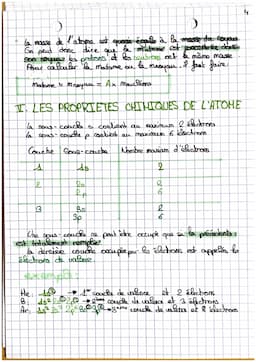 4
La masse de l'atome est quasi égale à la masse du noyau
On peut donc dire que la matière est concentrée dans
son noyau, les protons et les neutrons ont la même masse
Pour calculer la matome ou la mnoyau, il faut faire:
Matome ≈ mnoyau = A × mnucléons
I. LES PROPRIETES CHIMIQUES DE L'ATOME
La sous-couche s contient au maximum 2 électrons
La sous-couche p contient au maximum 6 électrons
Couche Sous-couche Nombre maximum d'électrons
1 1s 2
2 2s 2
2p 6
3 3s 2
3p 6
Une sous-couche ne peut être occupée que si la précédente
est totalement remplie
La dernière couche occupée par les électrons est appelée la
électrons de valence
exemple:
He: 1s² → 1ère couche de valence et 2 électrons
B: 1s² 2s² 2p¹ → 2ème couche de valence et 3 électrons
Ar: 1s² 2s² 2p⁶ 3s² 3p⁶ → 3ème couche de valence et 8 électrons